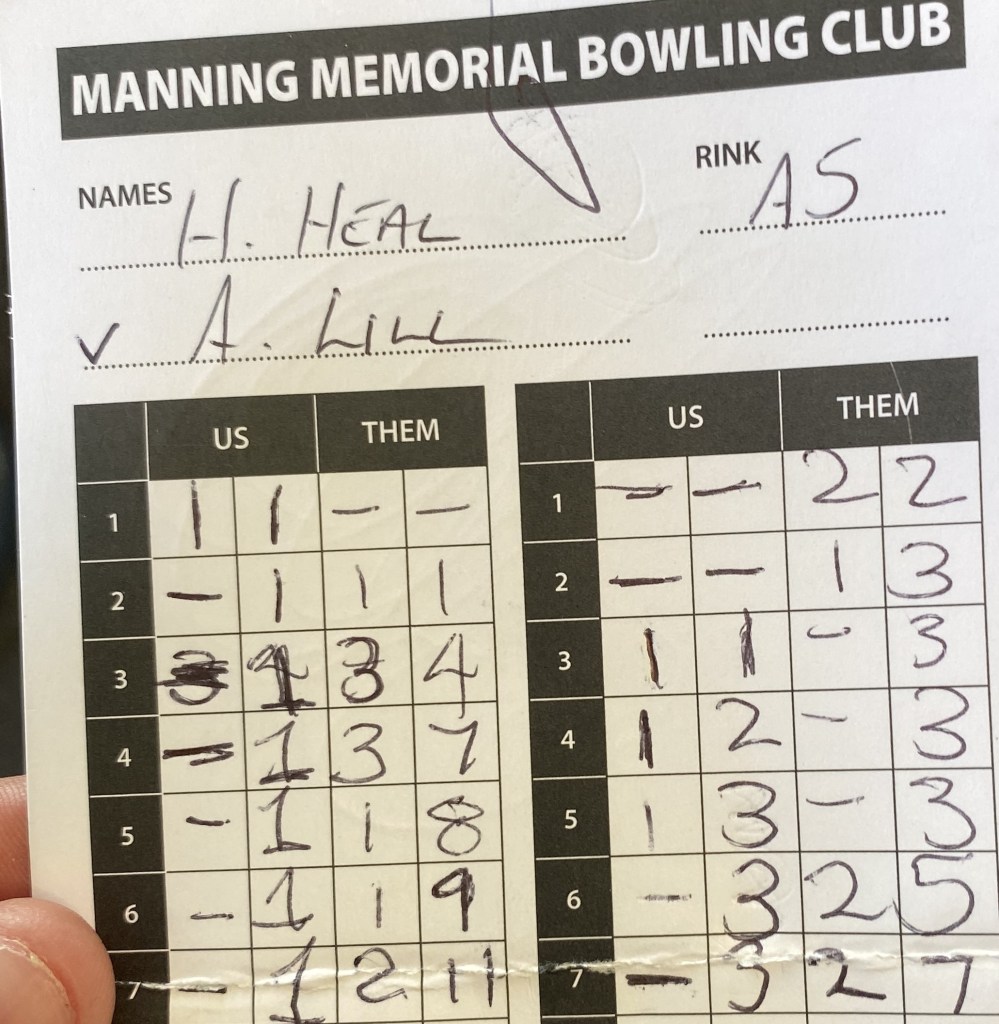 MANNING MEMORIAL BOWLING CLUB
NAMES H. HEAL RINK A5
V A. LILL
US THEM
1 1 1 – –
2 – 1 1 1
3 1 3 4
4 – 1 3 7
5 – 1 1 8
6 – 1 1 9
7 – 1 2 11
US THEM
1 – – 2 2
2 – – 1 3
3 1 1 – 3
4 1 2 – 3
5 1 3 – 3
6 – 3 2 5
7 – 3 2 7